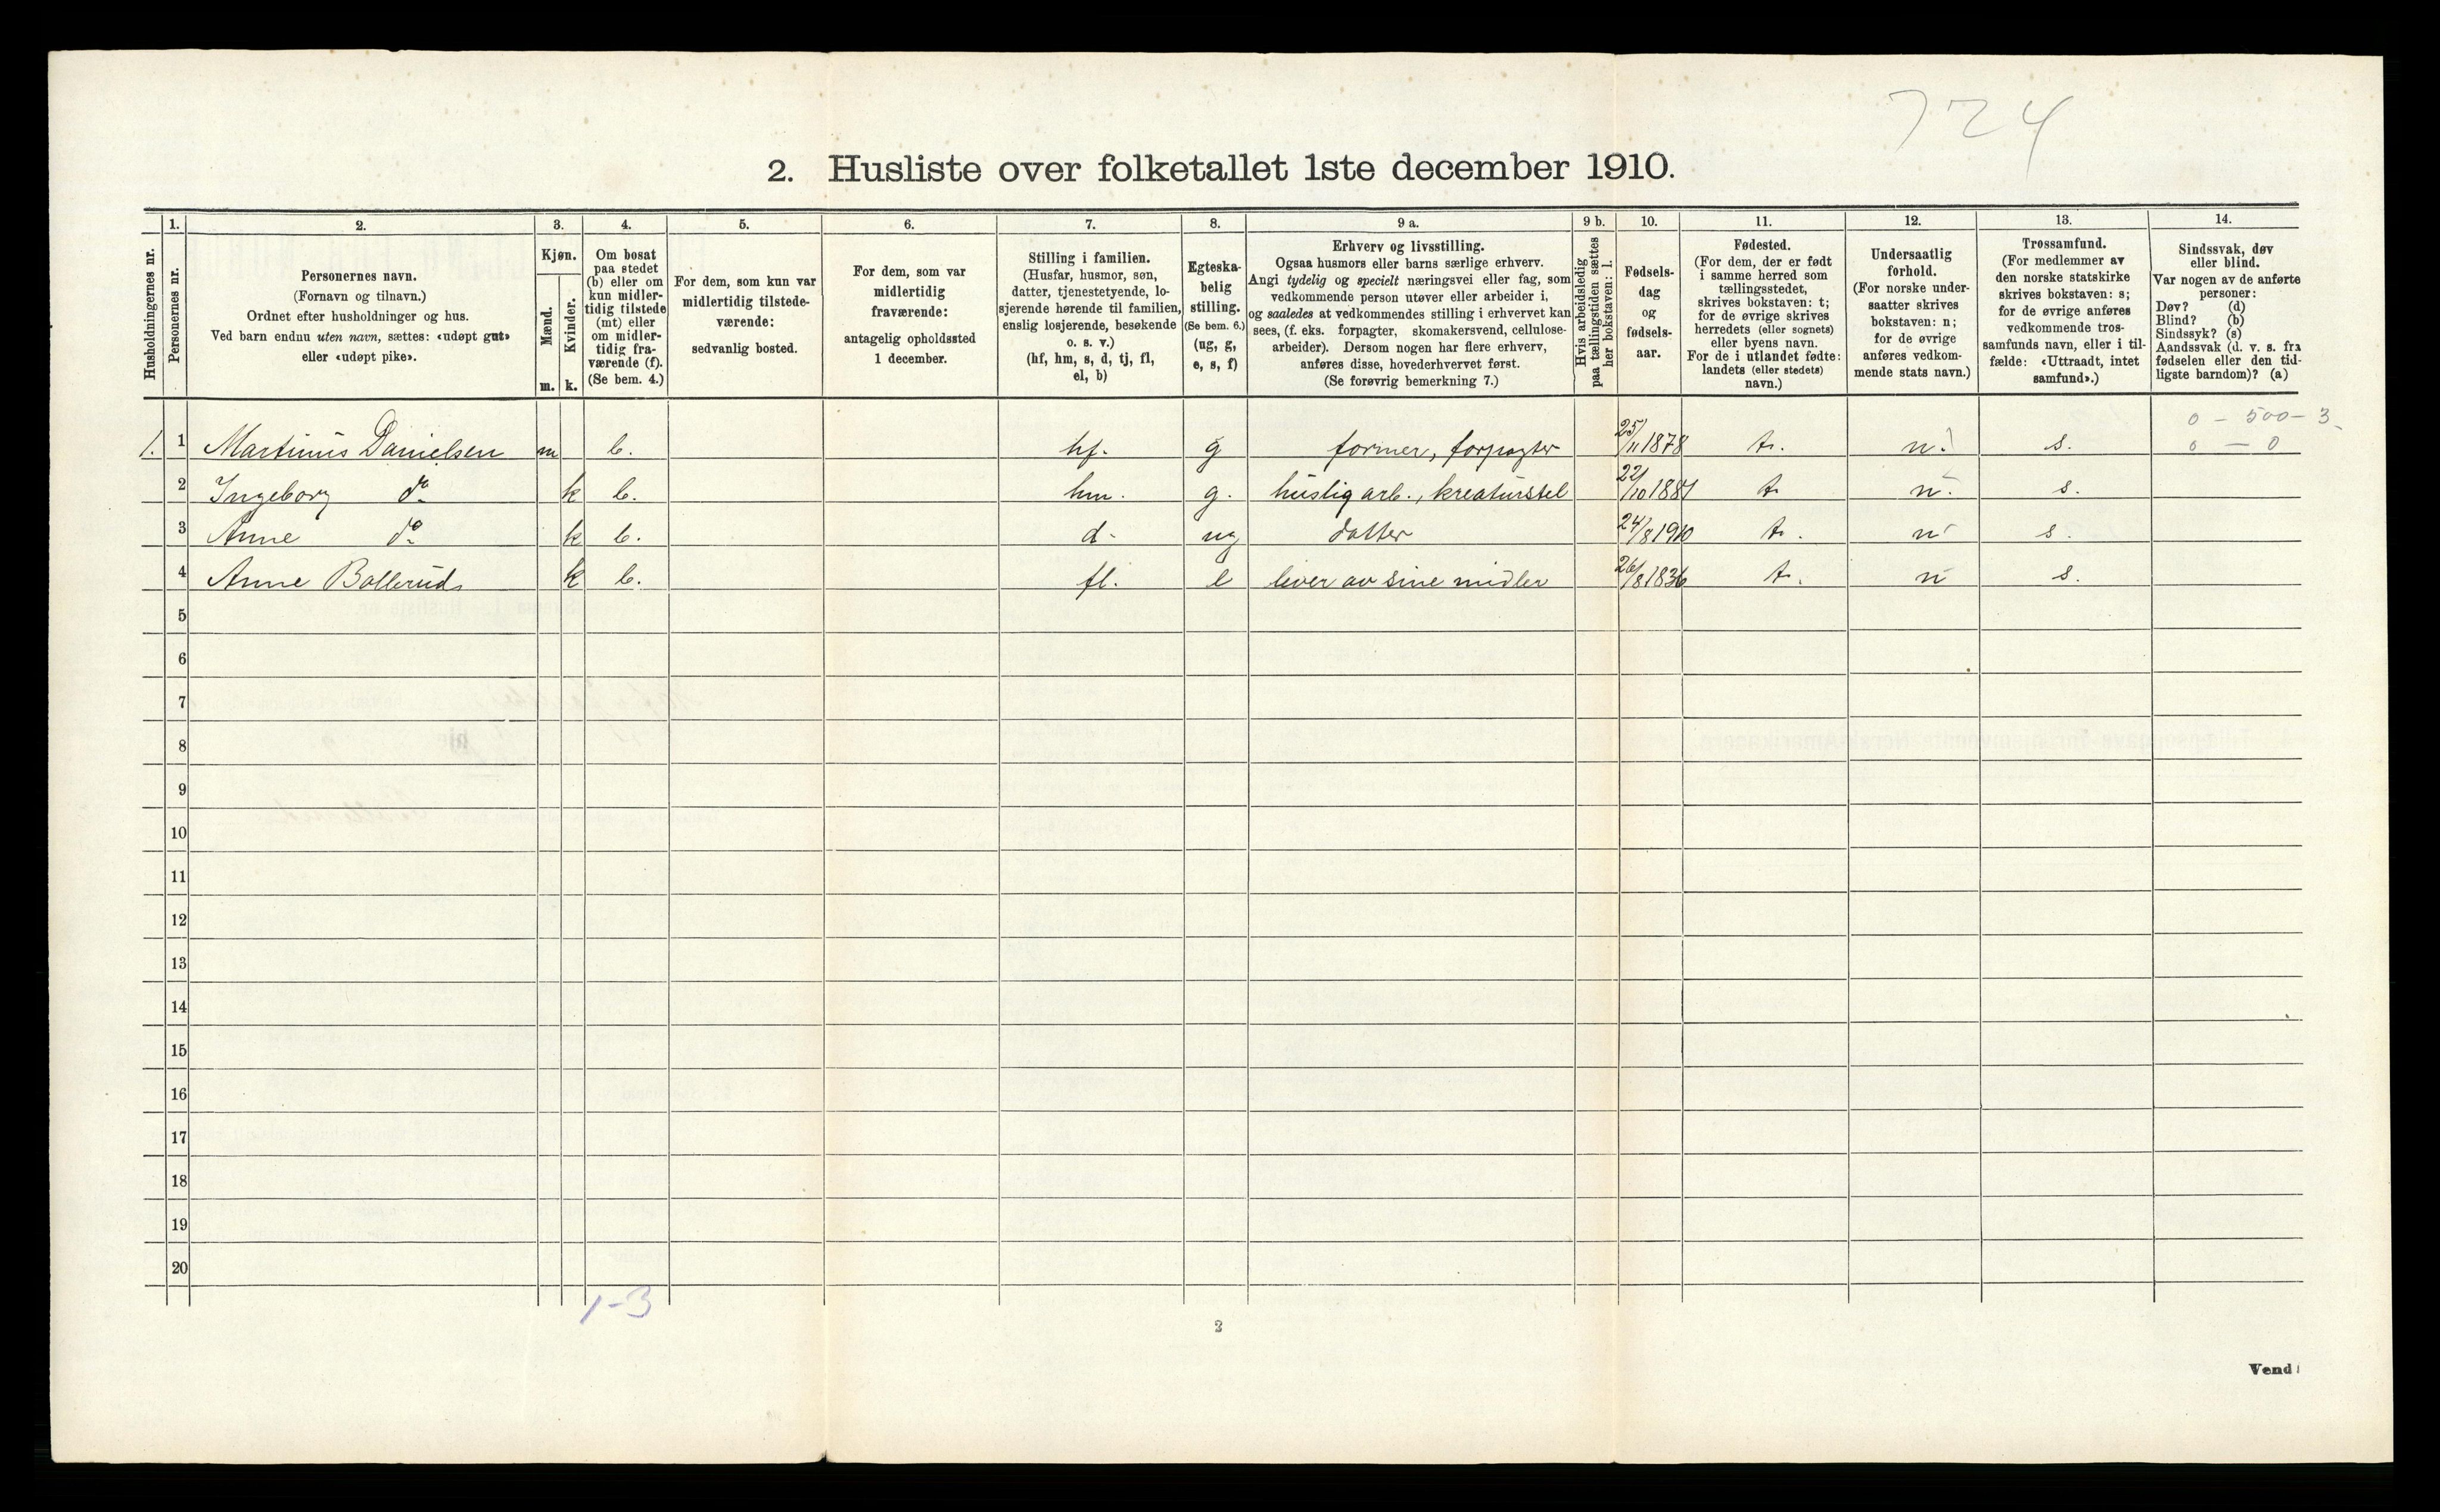 724
2. Husliste over folketallet 1ste december 1910.
1. 2. 3. 4. 5. 6. 7. 8. 9 a. 9 b. 10. 11. 12. 13. 14.
Husholdningernes nr.
Personernes nr.
Personernes navn.
(Fornavn og tilnavn.)
Ordnet efter husholdninger og hus.
Ved barn endnu uten navn, sættes: «udøpt gut»
eller «udøpt pike».
Kjøn.
Mænd.
Kvinder.
m. k.
Om bosat
paa stedet
(b) eller om
kun midler-
tidig tilstede
(mt) eller
om midler-
tidig fra-
værende (f).
(Se bem. 4.)
For dem, som kun var
midlertidig tilstede-
værende:
sedvanlig bosted.
For dem, som var
midlertidig
fraværende:
antagelig opholdssted
1 december.
Stilling i familien.
(Husfar, husmor, søn,
datter, tjenestetyende, lo-
sjerende hørende til familien,
enslig losjerende, besøkende
o. s. v.)
(hf, hm, s, d, tj, fl,
el, b)
Egteska-
belig
stilling.
(Se bem. 6.)
(ug, g,
e, s, f)
Erhverv og livsstilling.
Ogsaa husmors eller barns særlige erhverv.
Angi tydelig og specielt næringsvei eller fag, som
vedkommende person utøver eller arbeider i,
og saaledes at vedkommendes stilling i erhvervet kan
sees, (f. eks. forpagter, skomakersvend, cellulose-
arbeider). Dersom nogen har flere erhverv,
anføres disse, hovederhvervet først.
(Se forøvrig bemerkning 7.)
Hvis arbeidsledig
paa tællingstiden sættes
her bokstaven: l.
Fødsels-
dag
og
fødsels-
aar.
Fødested.
(For dem, der er født
i samme herred som
tællingsstedet,
skrives bokstaven: t;
for de øvrige skrives
herredets (eller sognets)
eller byens navn.
For de i utlandet fødte:
landets (eller stedets)
navn.)
Undersaatlig
forhold.
(For norske under-
saatter skrives
bokstaven: n;
for de øvrige
anføres vedkom-
mende stats navn.)
Trossamfund.
(For medlemmer av
den norske statskirke
skrives bokstaven: s;
for de øvrige anføres
vedkommende tros-
samfunds navn, eller i til-
fælde: «Uttraadt, intet
samfund».)
Sindssvak, døv
eller blind.
Var nogen av de anførte
personer:
Døv? (d)
Blind? (b)
Sindssyk? (s)
Aandssvak (d. v. s. fra
fødselen eller den tid-
ligste barndom)? (a)
0 - 500 - 3
1. 1 Martinus Danielsen m b. hf. g former, forpagter 25/11 1878 t. n. s. 0 - 0
2 Ingeborg do k b. hm. g. huslig arb., kreaturstel 22/10 1881 t n. s.
3 Anne do k b. d. ug datter 24/8 1910 t. n s.
4 Anne Bollerud k b. fl. e lever av sine midler 26/8 1836 t. n s.
5
6
7
8
9
10
11
12
13
14
15
16
17
18
19
20
1-3
2
Vend!